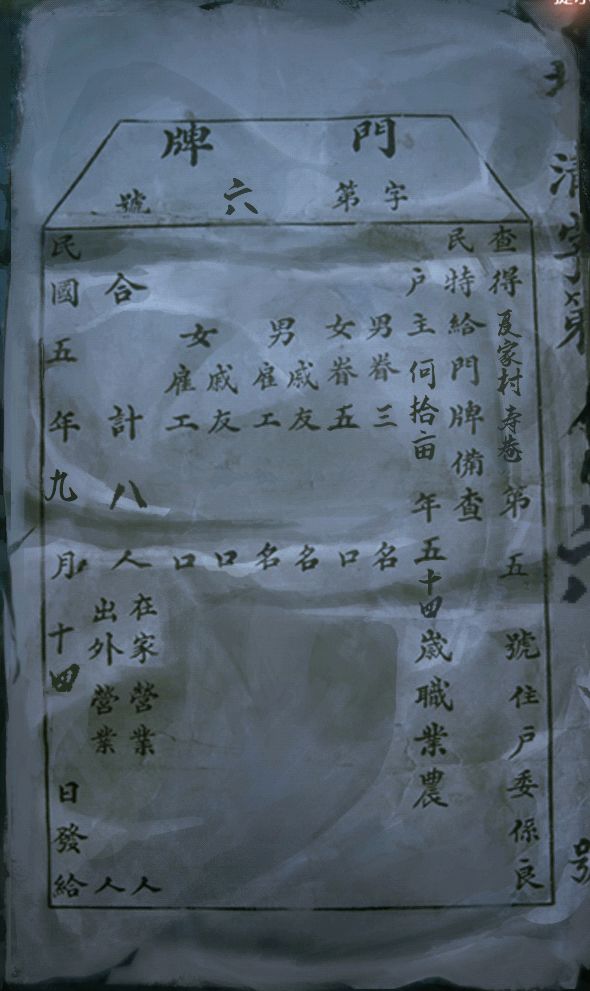 門牌
字第六號
查得夏家村寿巷第五號住戶委係良
民特給門牌備查
戶主何拾亩年五十四歲職業農
男眷三名
女眷五口
男戚友名
雇工名
女戚友口
雇工口
合計八人在家營業人
出外營業人
民國五年九月十四日發給
號